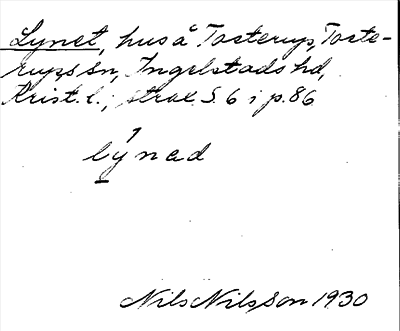 Lynet, hus å Tosterup, Toste-
rups sn, Ingelstads hd,
Krist. l.; strax S. 6 i p. 86
lýned
Nils Nilsson 1930